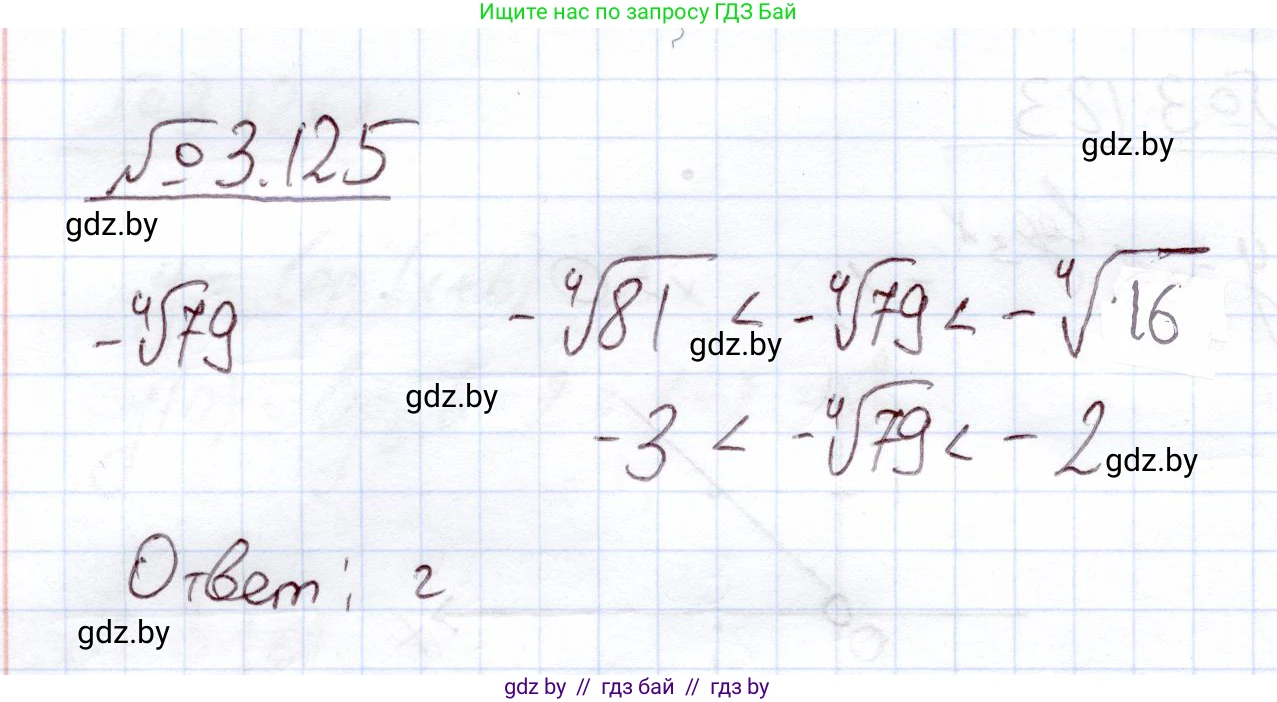 Ищите нас по запросу ГДЗ Бай
№ 3.125
gdz.by
gdz.by
-∜79
-∜81 < -∜79 < -∜16
gdz.by
gdz.by
-3 < -∜79 < -2
gdz.by
Ответ: г
gdz.by
gdz by // гдз бай // гдз by